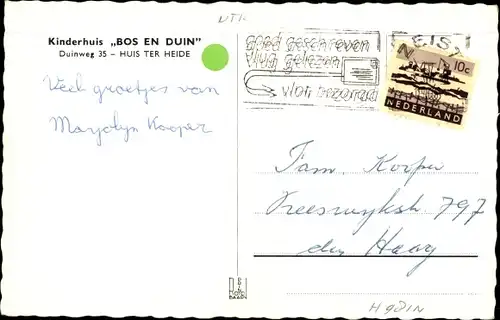 NTR
Kinderhuis „BOS EN DUIN”
Duinweg 35 – HUIS TER HEIDE
Veel groetjes van
Marjolyn Kooper
goed geschreven
vlug gelezen
vlot bezorgd
EIST
10c
NEDERLAND
Fam. Kooper
797
den Haag